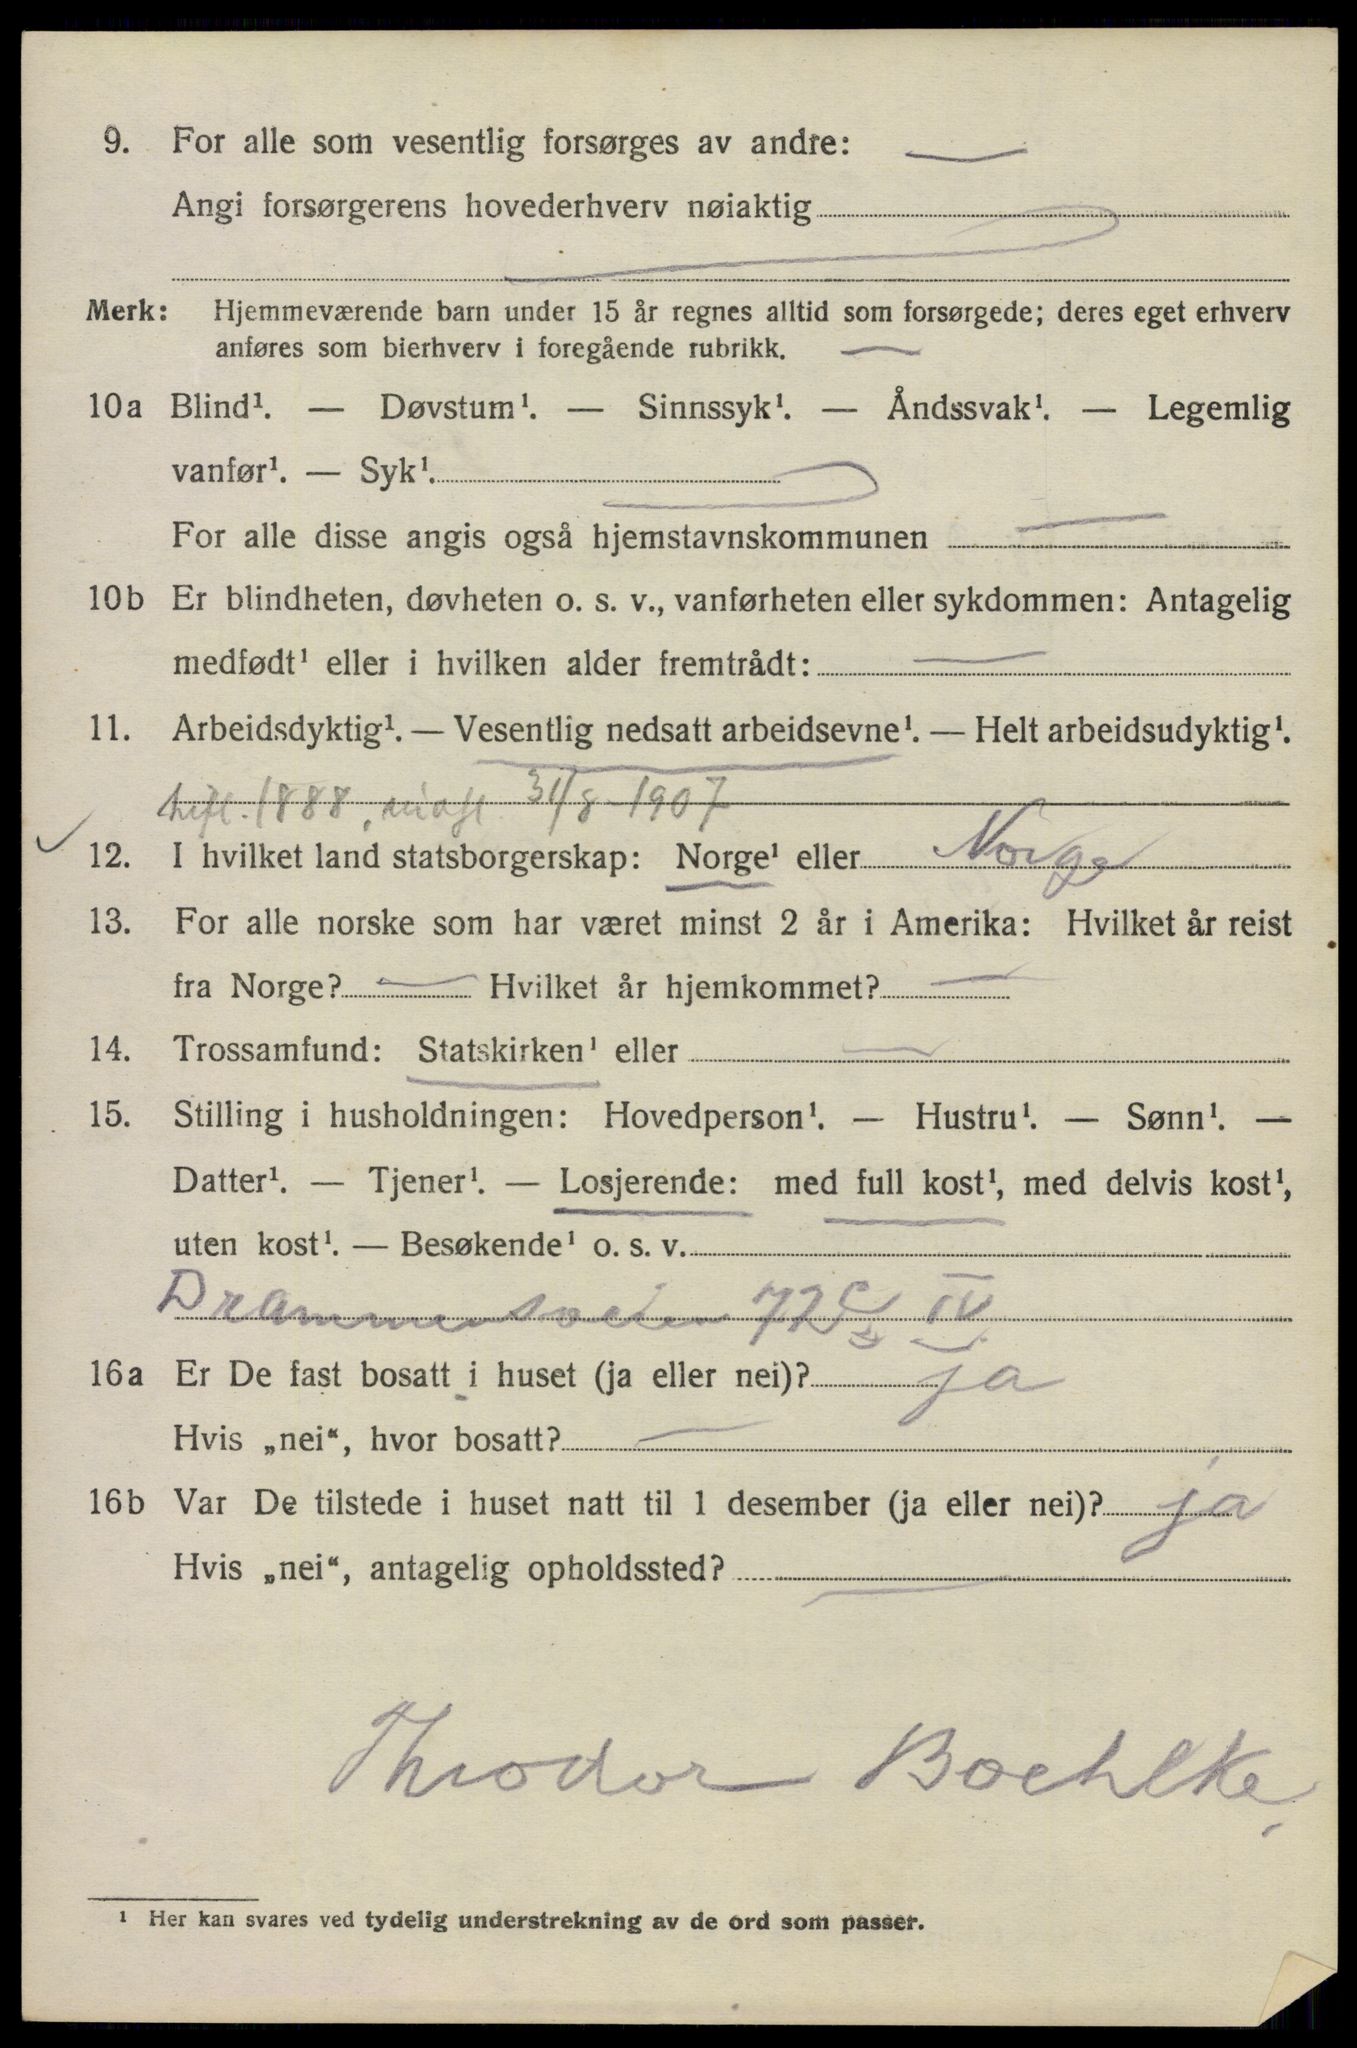 9. For alle som vesentlig forsørges av andre: —
Angi forsørgerens hovederhverv nøiaktig
Merk: Hjemmeværende barn under 15 år regnes alltid som forsørgede; deres eget erhverv
anføres som bierhverv i foregående rubrikk. —
10a Blind¹. — Døvstum¹. — Sinnssyk¹. — Åndssvak¹. — Legemlig
vanfør¹. — Syk¹.
For alle disse angis også hjemstavnskommunen —
10b Er blindheten, døvheten o. s. v., vanførheten eller sykdommen: Antagelig
medfødt¹ eller i hvilken alder fremtrådt: —
11. Arbeidsdyktig¹. — Vesentlig nedsatt arbeidsevne¹. — Helt arbeidsudyktig¹.
1888, 31/8 1907
12. I hvilket land statsborgerskap: Norge¹ eller Norge
13. For alle norske som har været minst 2 år i Amerika: Hvilket år reist
fra Norge? — Hvilket år hjemkommet? —
14. Trossamfund: Statskirken¹ eller —
15. Stilling i husholdningen: Hovedperson¹. — Hustru¹. — Sønn¹. —
Datter¹. — Tjener¹. — Losjerende: med full kost¹, med delvis kost¹,
uten kost¹. — Besøkende¹ o. s. v.
Drammensveien 72c IV
16a Er De fast bosatt i huset (ja eller nei)? ja
Hvis „nei“, hvor bosatt? —
16b Var De tilstede i huset natt til 1 desember (ja eller nei)? ja
Hvis „nei“, antagelig opholdssted? —
Theodor Boehlke
¹ Her kan svares ved tydelig understrekning av de ord som passer.